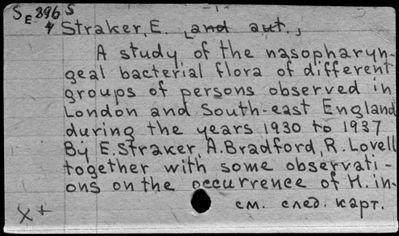 SE 896 S
4 Straker, E. and aut.,
A study of the nasopharyn-
geal bacterial flora of different
groups of persons observed in
London and South-east England
during the years 1930 to 1937
By E. Straker, A. Bradford, R. Lovell
together with some observati-
ons on the occurrence of H. in-
см. след. карт.
X+